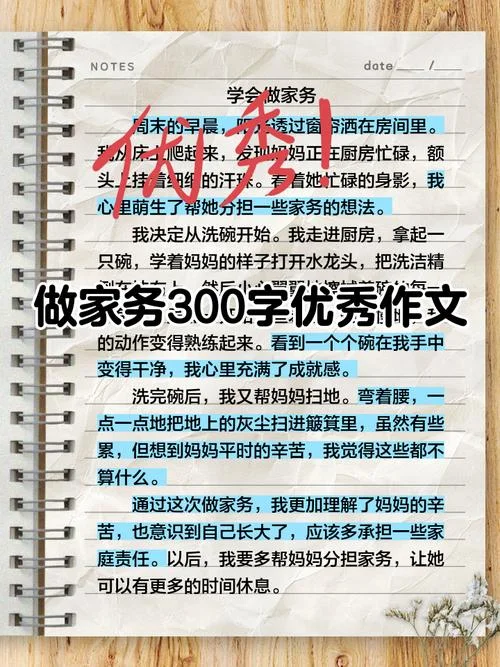 NOTES
date /
学会做家务
周末的早晨，阳光透过窗帘洒在房间里。
我从床上爬起来，发现妈妈正在厨房忙碌，额
头上挂着细细的汗珠。看着她忙碌的身影，我
心里萌生了帮她分担一些家务的想法。
优秀！
我决定从洗碗开始。我走进厨房，拿起一
只碗，学着妈妈的样子打开水龙头，把洗洁精
做家务300字优秀作文
的动作变得熟练起来。看到一个个碗在我手中
变得干净，我心里充满了成就感。
洗完碗后，我又帮妈妈扫地。弯着腰，一
点一点地把地上的灰尘扫进簸箕里，虽然有些
累，但想到妈妈平时的辛苦，我觉得这些都不
算什么。
通过这次做家务，我更加理解了妈妈的辛
苦，也意识到自己长大了，应该多承担一些家
庭责任。以后，我要多帮妈妈分担家务，让她
可以有更多的时间休息。